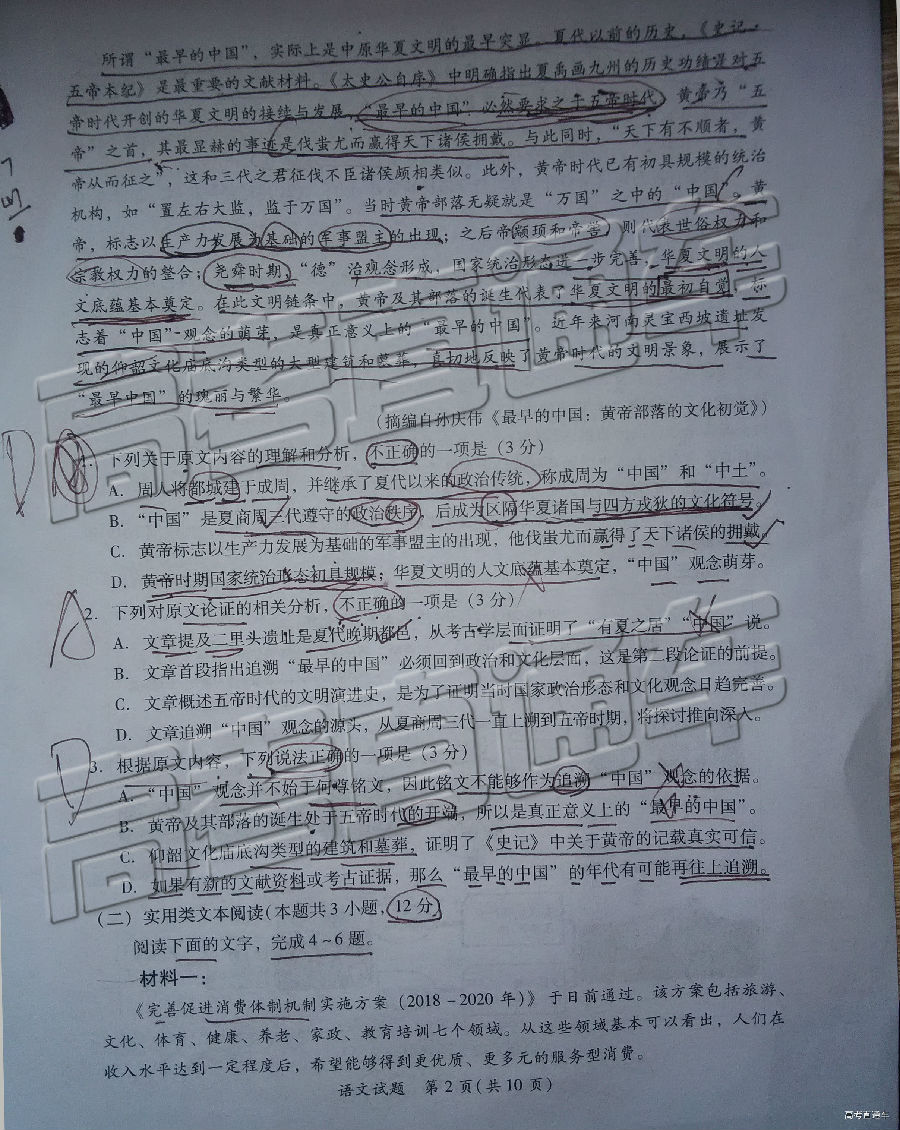 所谓“最早的中国”，实际上是中原华夏文明的最早突显。夏代以前的历史，《史记·
五帝本纪》是最重要的文献材料。《太史公自序》中明确指出夏禹画九州的历史功绩是对五
帝时代开创的华夏文明的接续与发展，“最早的中国”必然要求之于五帝时代。黄帝乃“五
帝”之首，其最显赫的事迹是伐蚩尤而赢得天下诸侯拥戴。与此同时，“天下有不顺者，黄
帝从而征之”，这和三代之君征伐不臣诸侯颇相类似。此外，黄帝时代已有初具规模的统治
机构，如“置左右大监，监于万国”。当时黄帝部落无疑就是“万国”之中的“中国”。黄
帝，标志以生产力发展为基础的军事盟主的出现；之后帝颛顼和帝喾，则代表世俗权力和
宗教权力的整合；尧舜时期，“德”治观念形成，国家统治形态进一步完善，华夏文明的人
文底蕴基本奠定。在此文明链条中，黄帝及其部落的诞生代表了华夏文明的最初自觉，标
志着“中国”观念的萌芽，是真正意义上的“最早的中国”。近年来河南灵宝西坡遗址发
现的仰韶文化庙底沟类型的大型建筑和墓葬，真切地反映了黄帝时代的文明景象，展示了
“最早中国”的瑰丽与繁华。
（摘编自孙庆伟《最早的中国：黄帝部落的文化初觉》）
1. 下列关于原文内容的理解和分析，不正确的一项是（3分）
A. 周人将都城建于成周，并继承了夏代以来的政治传统，称成周为“中国”和“中土”。
B. “中国”是夏商周三代遵守的政治秩序，后成为区隔华夏诸国与四方戎狄的文化符号。
C. 黄帝标志以生产力发展为基础的军事盟主的出现，他伐蚩尤而赢得了天下诸侯的拥戴。
D. 黄帝时期国家统治形态初具规模；华夏文明的人文底蕴基本奠定，“中国”观念萌芽。
2. 下列对原文论证的相关分析，不正确的一项是（3分）
A. 文章提及二里头遗址是夏代晚期都邑，从考古学层面证明了“有夏之居”“中国”说。
B. 文章首段指出追溯“最早的中国”必须回到政治和文化层面，这是第二段论证的前提。
C. 文章概述五帝时代的文明演进史，是为了证明当时国家政治形态和文化观念日趋完善。
D. 文章追溯“中国”观念的源头，从夏商周三代一直上溯到五帝时期，将探讨推向深入。
3. 根据原文内容，下列说法正确的一项是（3分）
A. “中国”观念并不始于何尊铭文，因此铭文不能够作为追溯“中国”观念的依据。
B. 黄帝及其部落的诞生处于五帝时代的开端，所以是真正意义上的“最早的中国”。
C. 仰韶文化庙底沟类型的建筑和墓葬，证明了《史记》中关于黄帝的记载真实可信。
D. 如果有新的文献资料或考古证据，那么“最早的中国”的年代有可能再往上追溯。
（二）实用类文本阅读（本题共3小题，12分）
阅读下面的文字，完成4~6题。
材料一：
《完善促进消费体制机制实施方案（2018－2020年）》于日前通过。该方案包括旅游、
文化、体育、健康、养老、家政、教育培训七个领域。从这些领域基本可以看出，人们在
收入水平达到一定程度后，希望能够得到更优质、更多元的服务型消费。
语文试题 第2页（共10页）
高考直通车
高考直通车
高考直通车